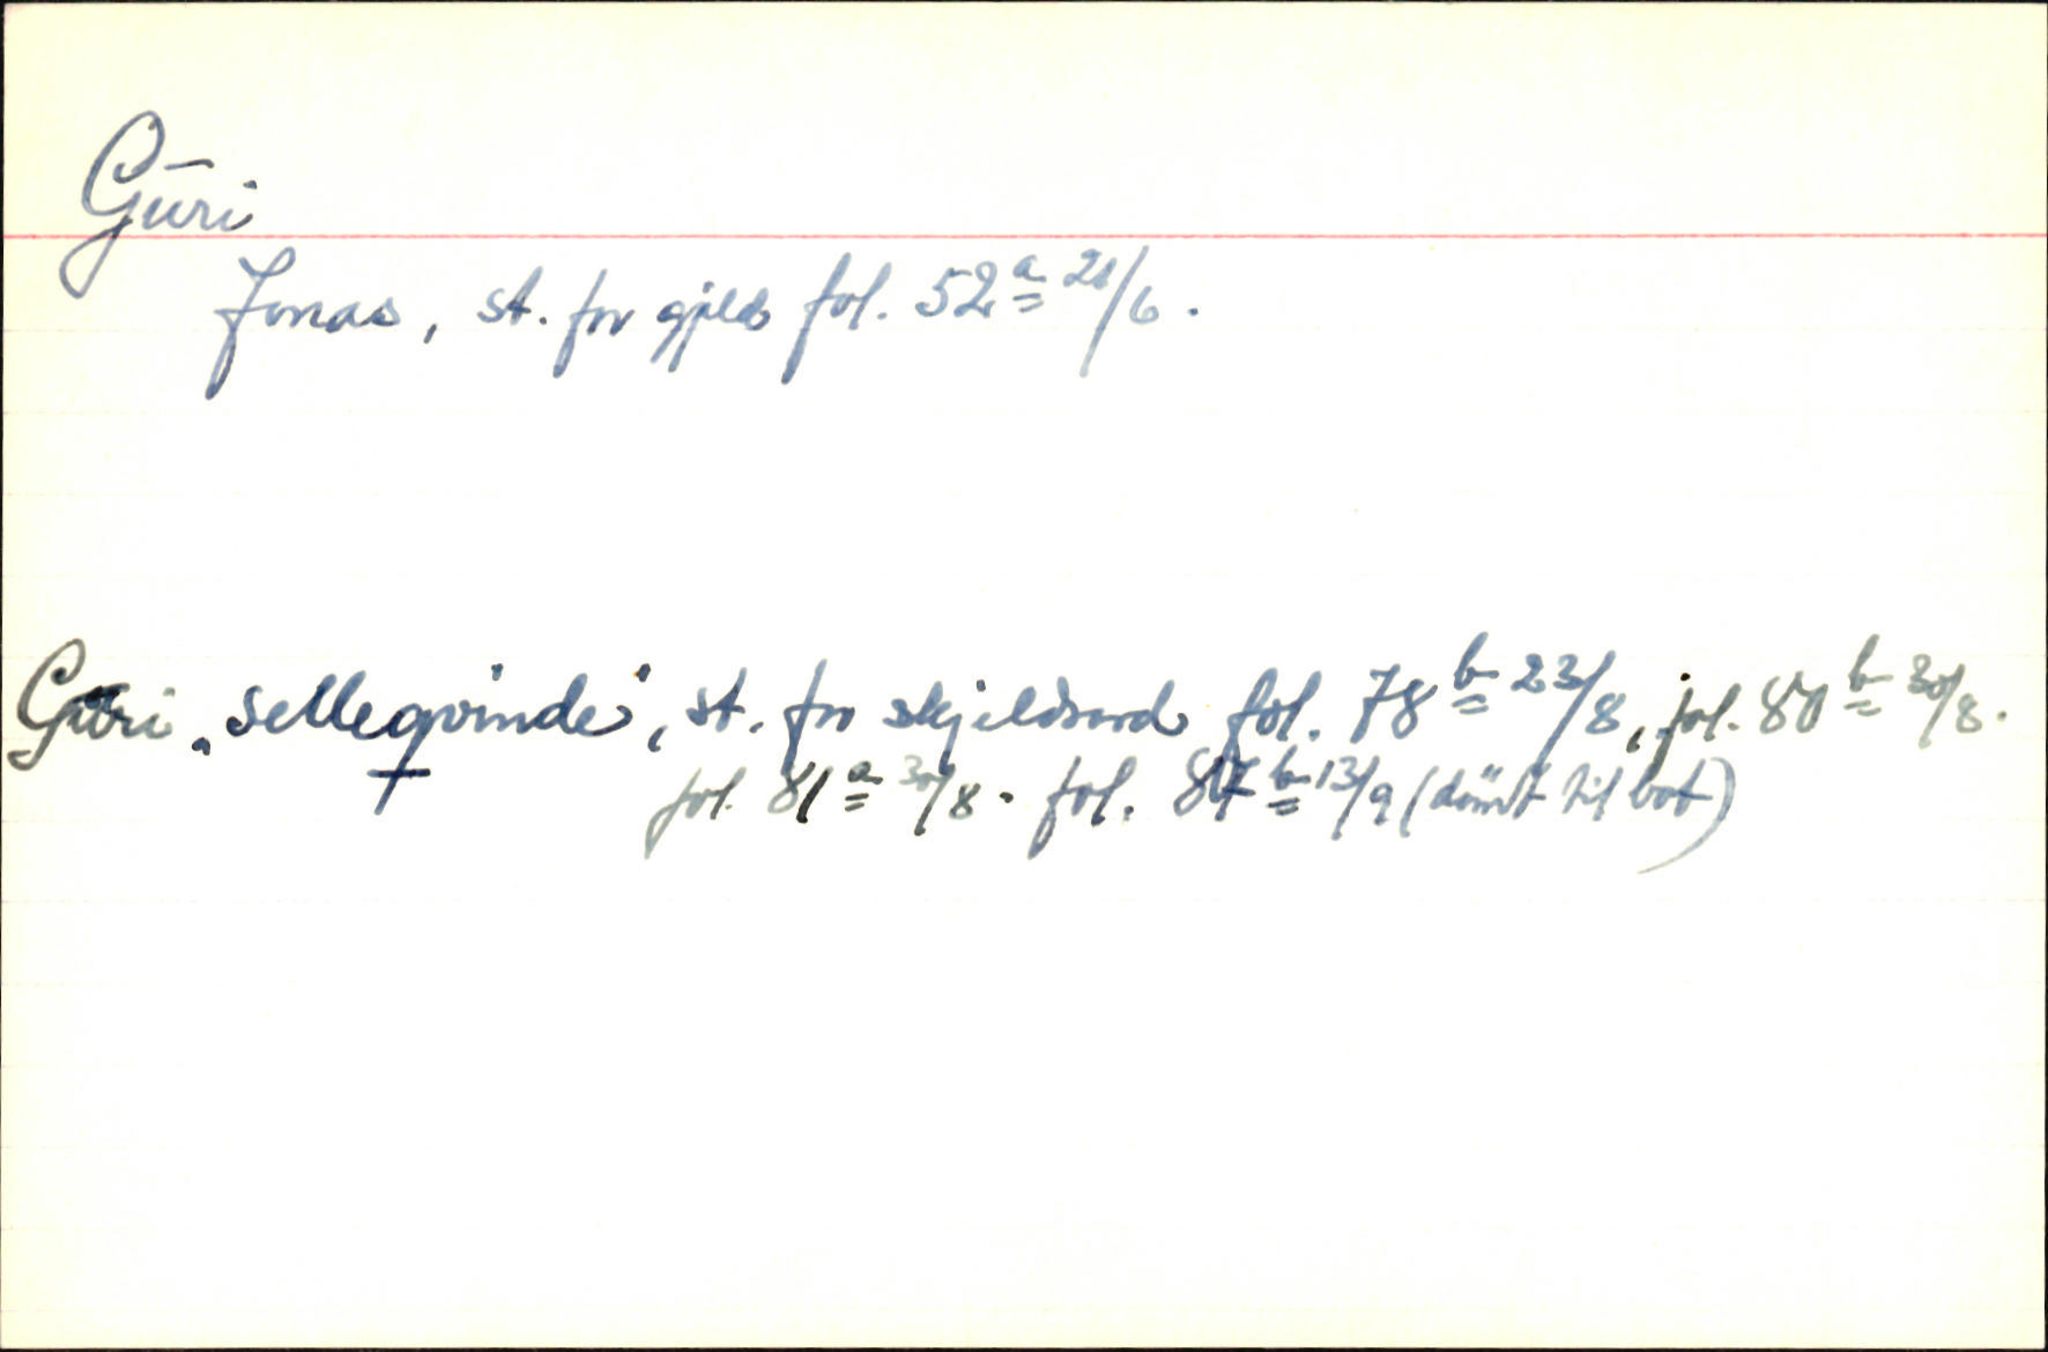 Guri
Jonas, st. for gjeld fol. 52a 21/6.
Guri „selleqvinde", st. for skjeldsord fol. 78b 23/8, fol. 80b 30/8.
fol. 81a 30/8. fol. 87b 13/9 (dömt til bot)